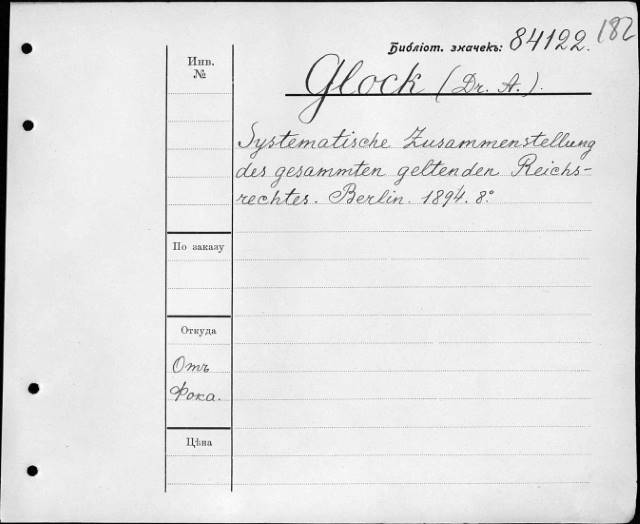 182
Библіот. значекъ: 84122.
Инв.
№
Glock (Dr. A.).
Systematische Zusammenstellung
des gesammten geltenden Reichs-
rechtes. Berlin. 1894. 8º
По заказу
Откуда
Отъ
Фока.
Цѣна